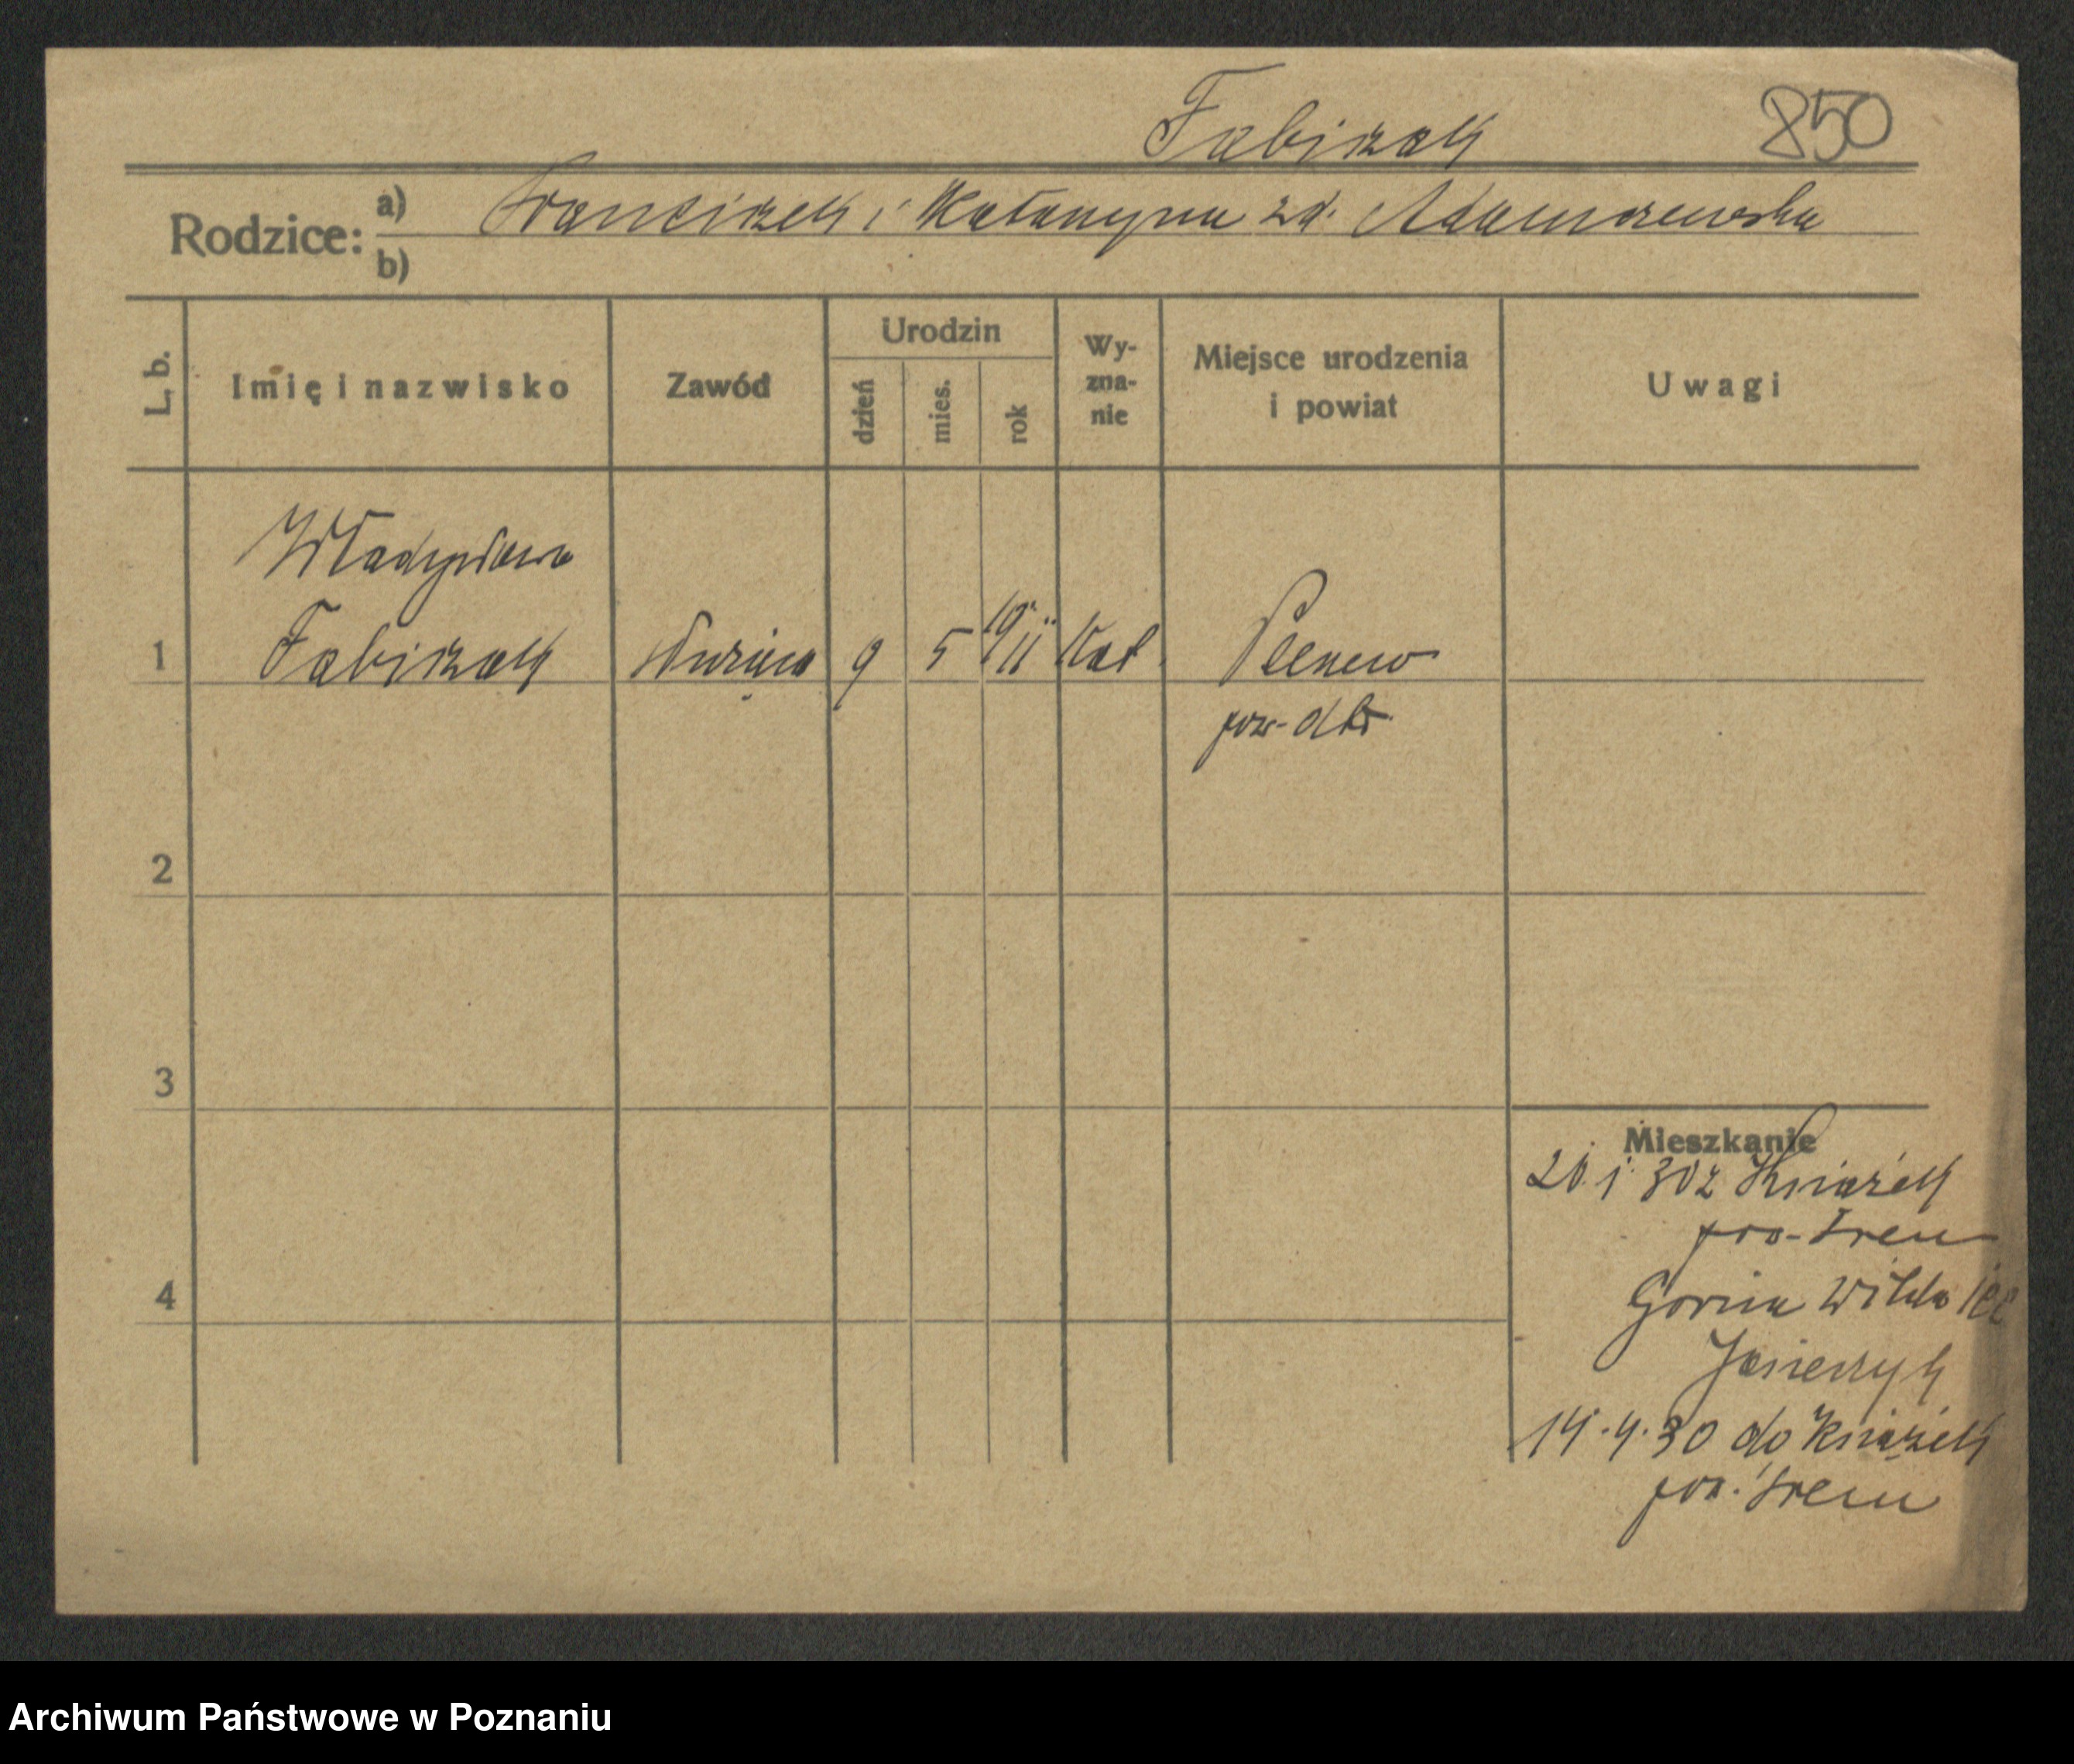 Fabiszak 850
Rodzice: a) Franciszek i Katarzyna zd. Adamczewska
b)
L. b. Imię i nazwisko Zawód Urodzin dzień mies. rok Wyznanie Miejsce urodzenia i powiat Uwagi
Władysława
1 Fabiszak służąca 9 5 1911 kat.
pow-
2
3
Mieszkanie
z Książek
pow-Śrem
4 Górna Wilda
14.4.30 do Książek
pow. Śrem
Archiwum Państwowe w Poznaniu